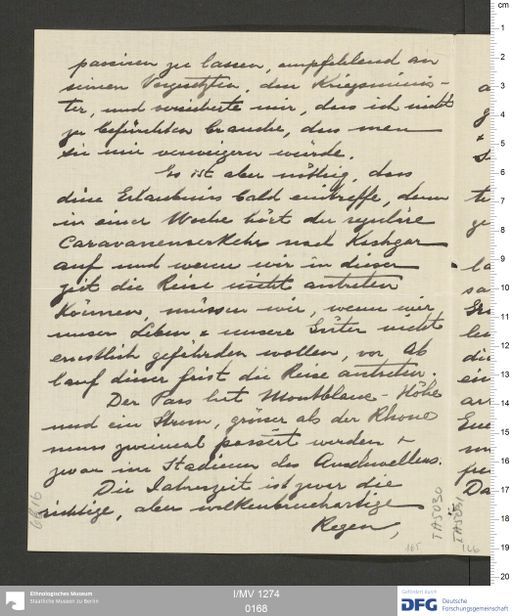 passieren zu lassen, empfehlend an
seinen Vorgesetzten, den Kriegsminis-
ter, und versicherte mir, dass ich nicht
zu befürchten brauche, dass man
sie mir verweigern würde.
Es ist aber nöthig, dass
diese Erlaubnis bald eintreffe, denn
in einer Woche hört der reguläre
Caravanenverkehr nach Kashgar
auf und wenn wir in dieser
Zeit die Reise nicht antreten
können, müssen wir, wenn wir
unser Leben & unsere Güter nicht
ernstlich gefährden wollen, vor Ab
lauf dieser Frist die Reise antreten.
Der Pass hat Montblanc-Höhe
und ein Strom, grösser als der Rhone
muss zweimal passiert werden &
zwar im Stadium des Anschwellens.
Die Jahreszeit ist zwar die
richtige, aber wolkenbruchartige
Regen,
IA5030
IA5031
165
126
I/MV 1274
0168
Ethnologisches Museum
Staatliche Museen zu Berlin
Gefördert durch
DFG Deutsche
Forschungsgemeinschaft
cm
1
2
3
4
5
6
7
8
9
10
11
12
13
14
15
16
17
18
19
20